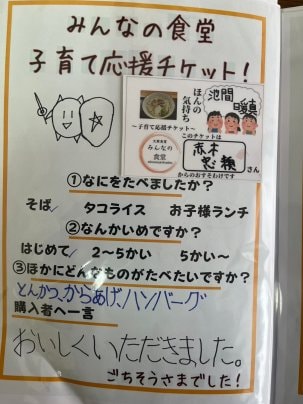 みんなの食堂
子育て応援チケット!
ほんの
気持ち
～子育て応援チケット～
みんなの
食堂
このチケットは
赤木
さん
からのおすそわけです
①なにをたべましたか?
そば タコライス お子様ランチ
②なんかいめですか?
はじめて 2～5かい 5かい～
③ほかにどんなものがたべたいですか?
とんかつ、からあげ、ハンバーグ
購入者へ一言
おいしくいただきました。
ごちそうさまでした!